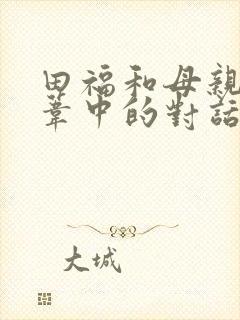 田福和母親
葦中的對話
大城